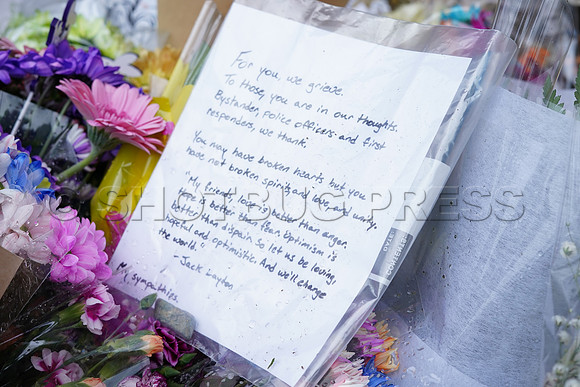 For you, we grieve.
To those, you are in our thoughts.
Bystander, police officers and first
responders, we thank.
You may have broken hearts but you
have not broken spirits and love and unity.
"My friends, love is better than anger.
Hope is better than fear. Optimism is
better than dispair. So let us be loving,
hopeful and optimistic. And we'll change
the world."
- Jack Layton
My sympathies.
© SHOTBUG PRESS